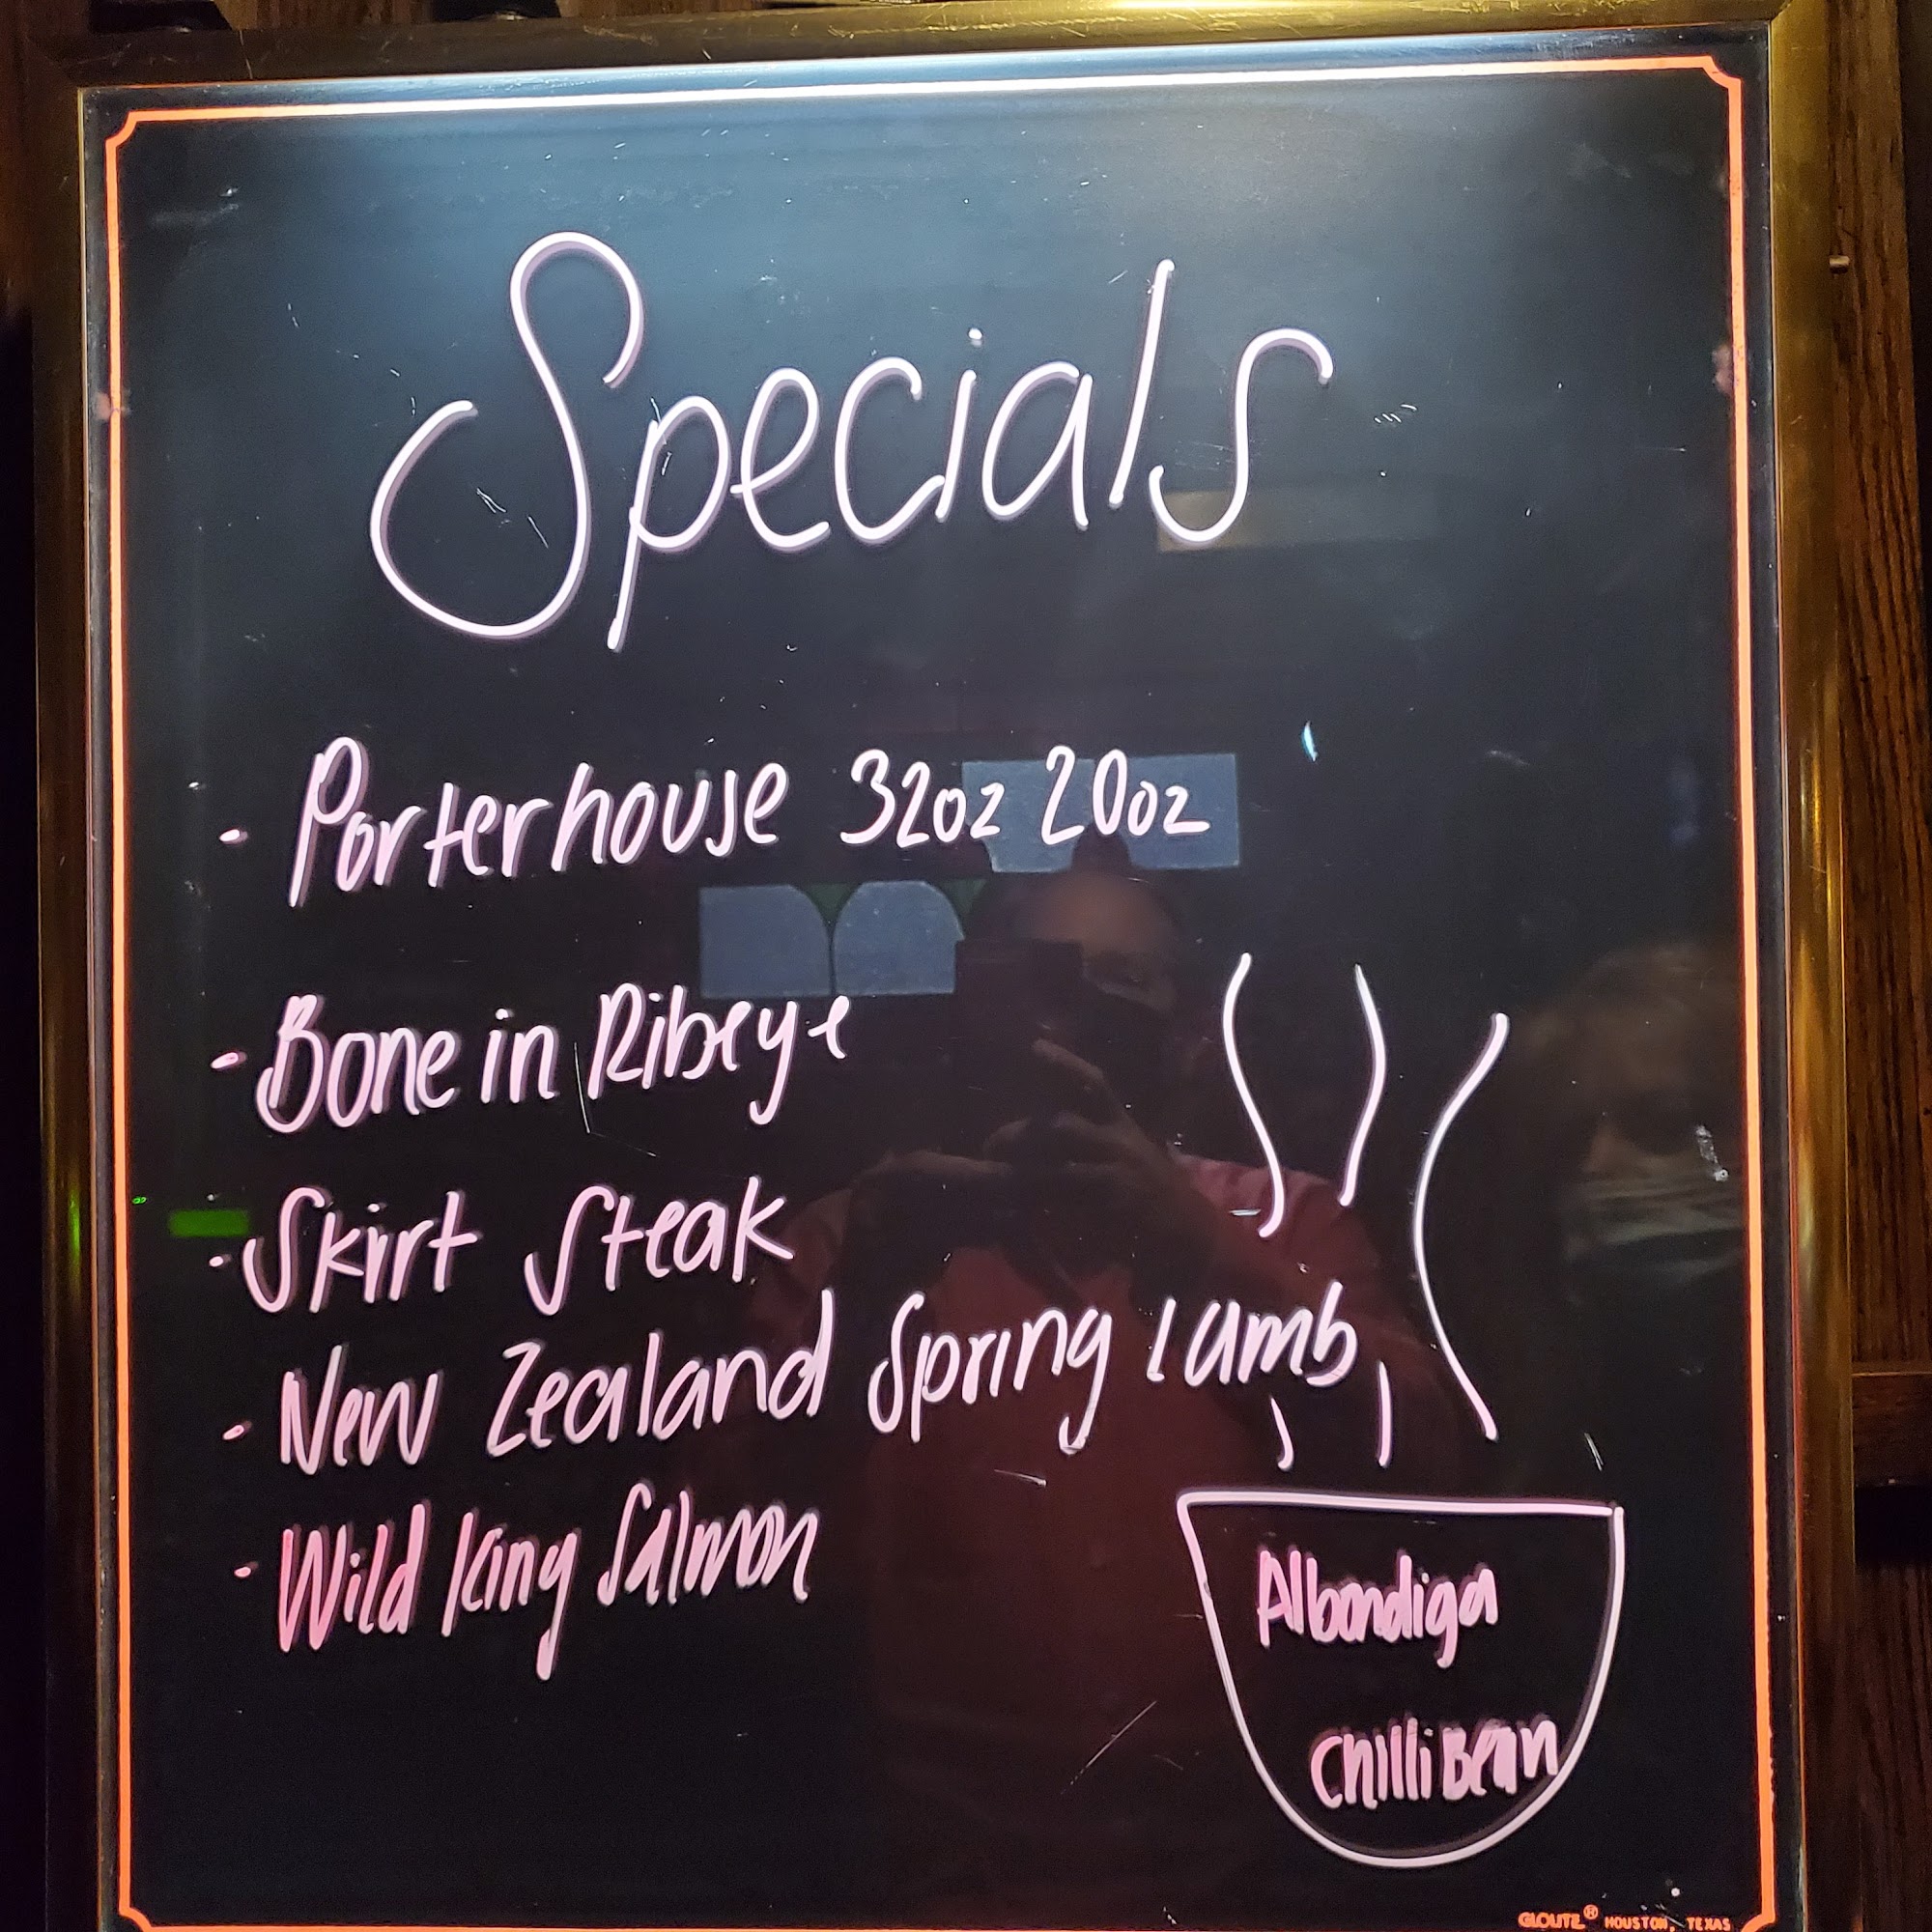 Specials
- Porterhouse 32oz 20oz
- Bone in Ribeye
- Skirt Steak
- New Zealand Spring lamb
- Wild King Salmon
Albondiga
Chilli Bean
GLOLITE® HOUSTON, TEXAS